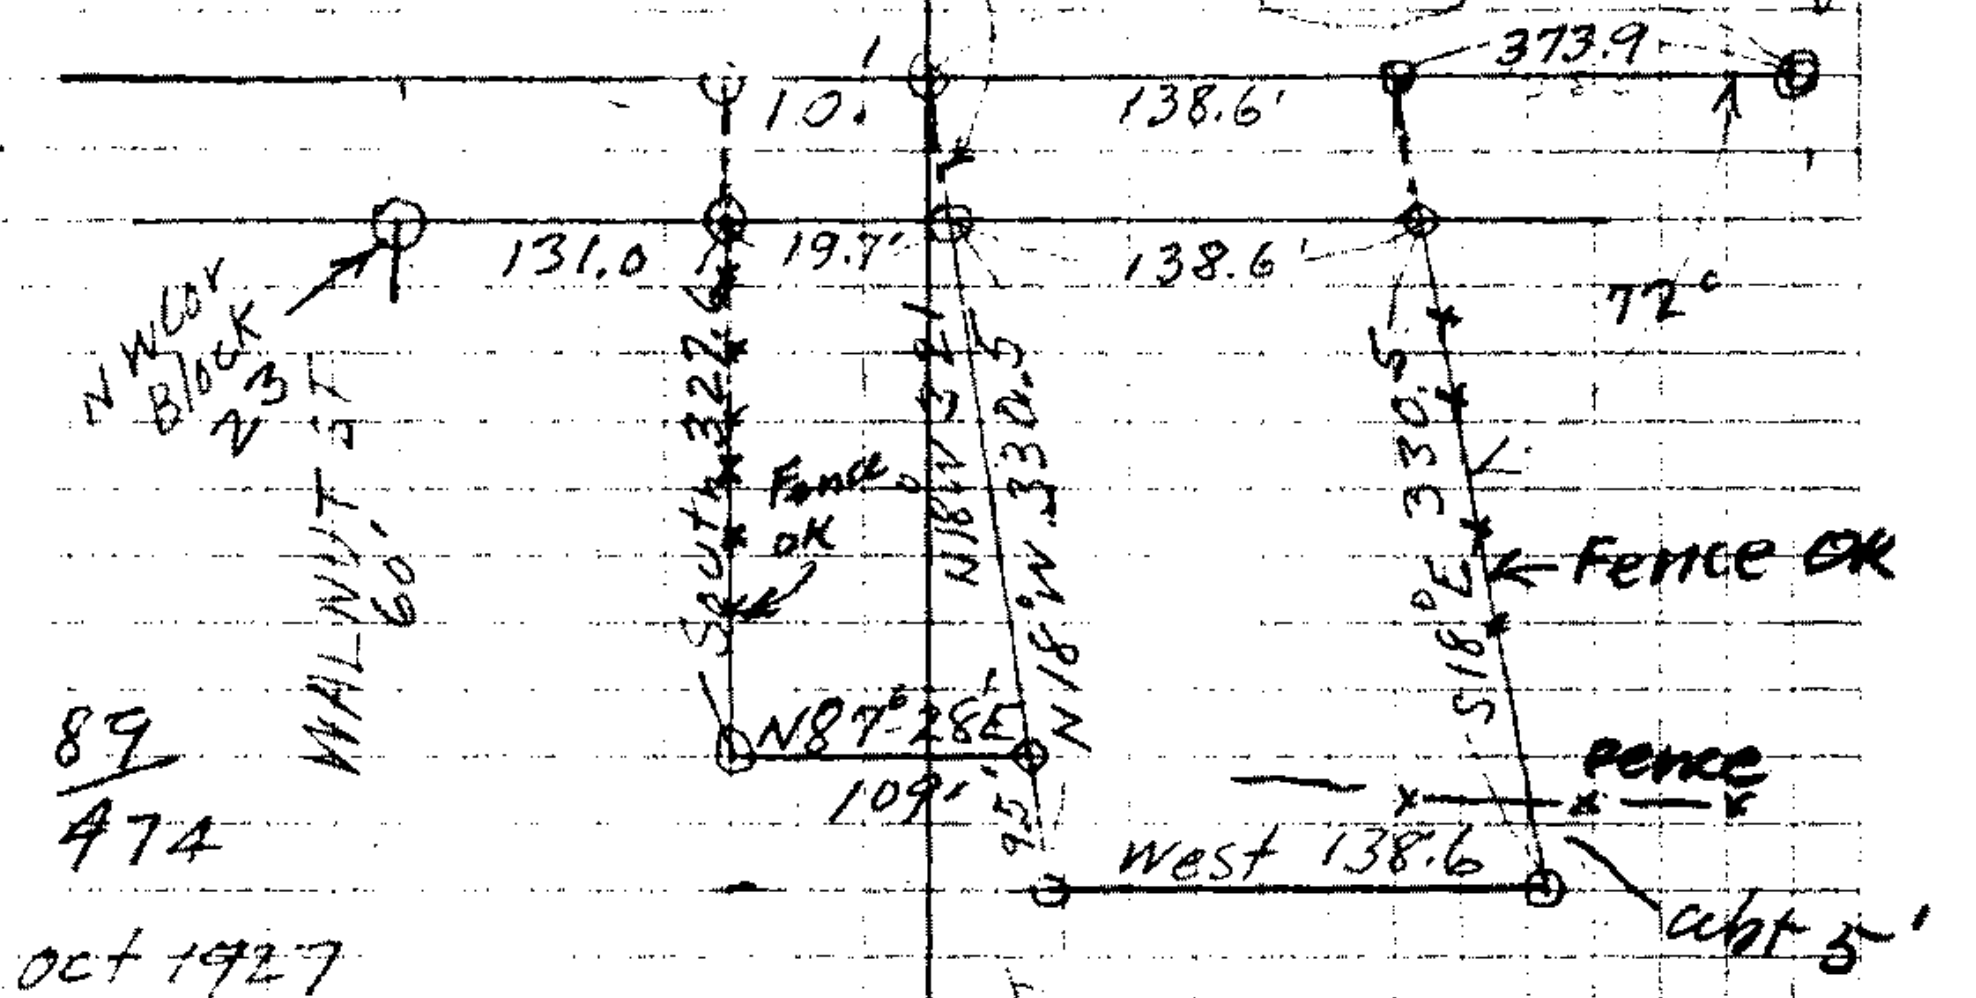 373.9
10.'
138.6'
131.0
19.7'
138.6'
72°
NW Cor
Block
23
WALNUT ST
60'
South 327.6
Fence
OK
N18°W 321
N18°W 330.5
S18°E 330.5
Fence OK
N87°28'E
109'
9.5'
Fence
West 138.6
abt 5'
89
474
Oct 1927